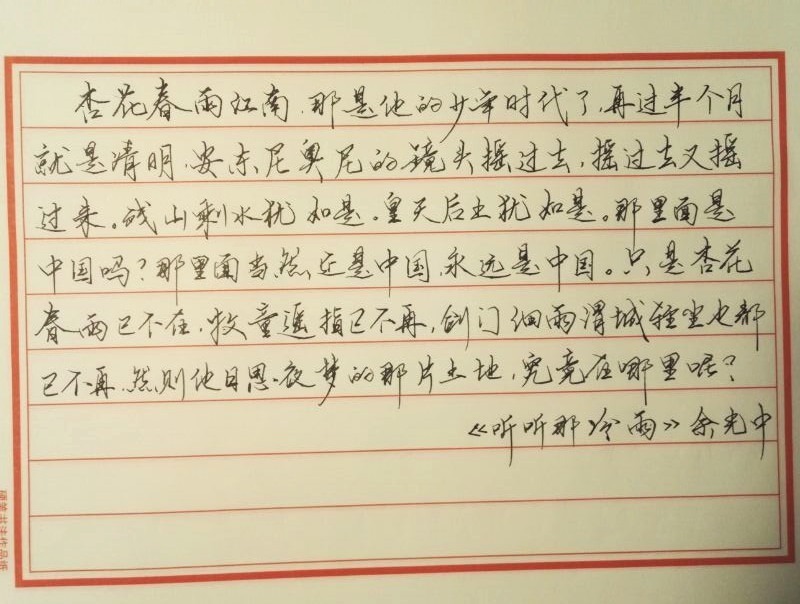 杏花春雨江南,那是他的少年时代了,再过半个月
就是清明,安东尼奥尼的镜头摇过去,摇过去又摇
过来。残山剩水犹如是。皇天后土犹如是。那里面是
中国吗?那里面当然还是中国,永远是中国。只是杏花
春雨已不在,牧童遥指已不再,剑门细雨渭城轻尘也都
已不再,然则他日思夜梦的那片土地,究竟在哪里呢?
《听听那冷雨》余光中
硬笔书法作品纸